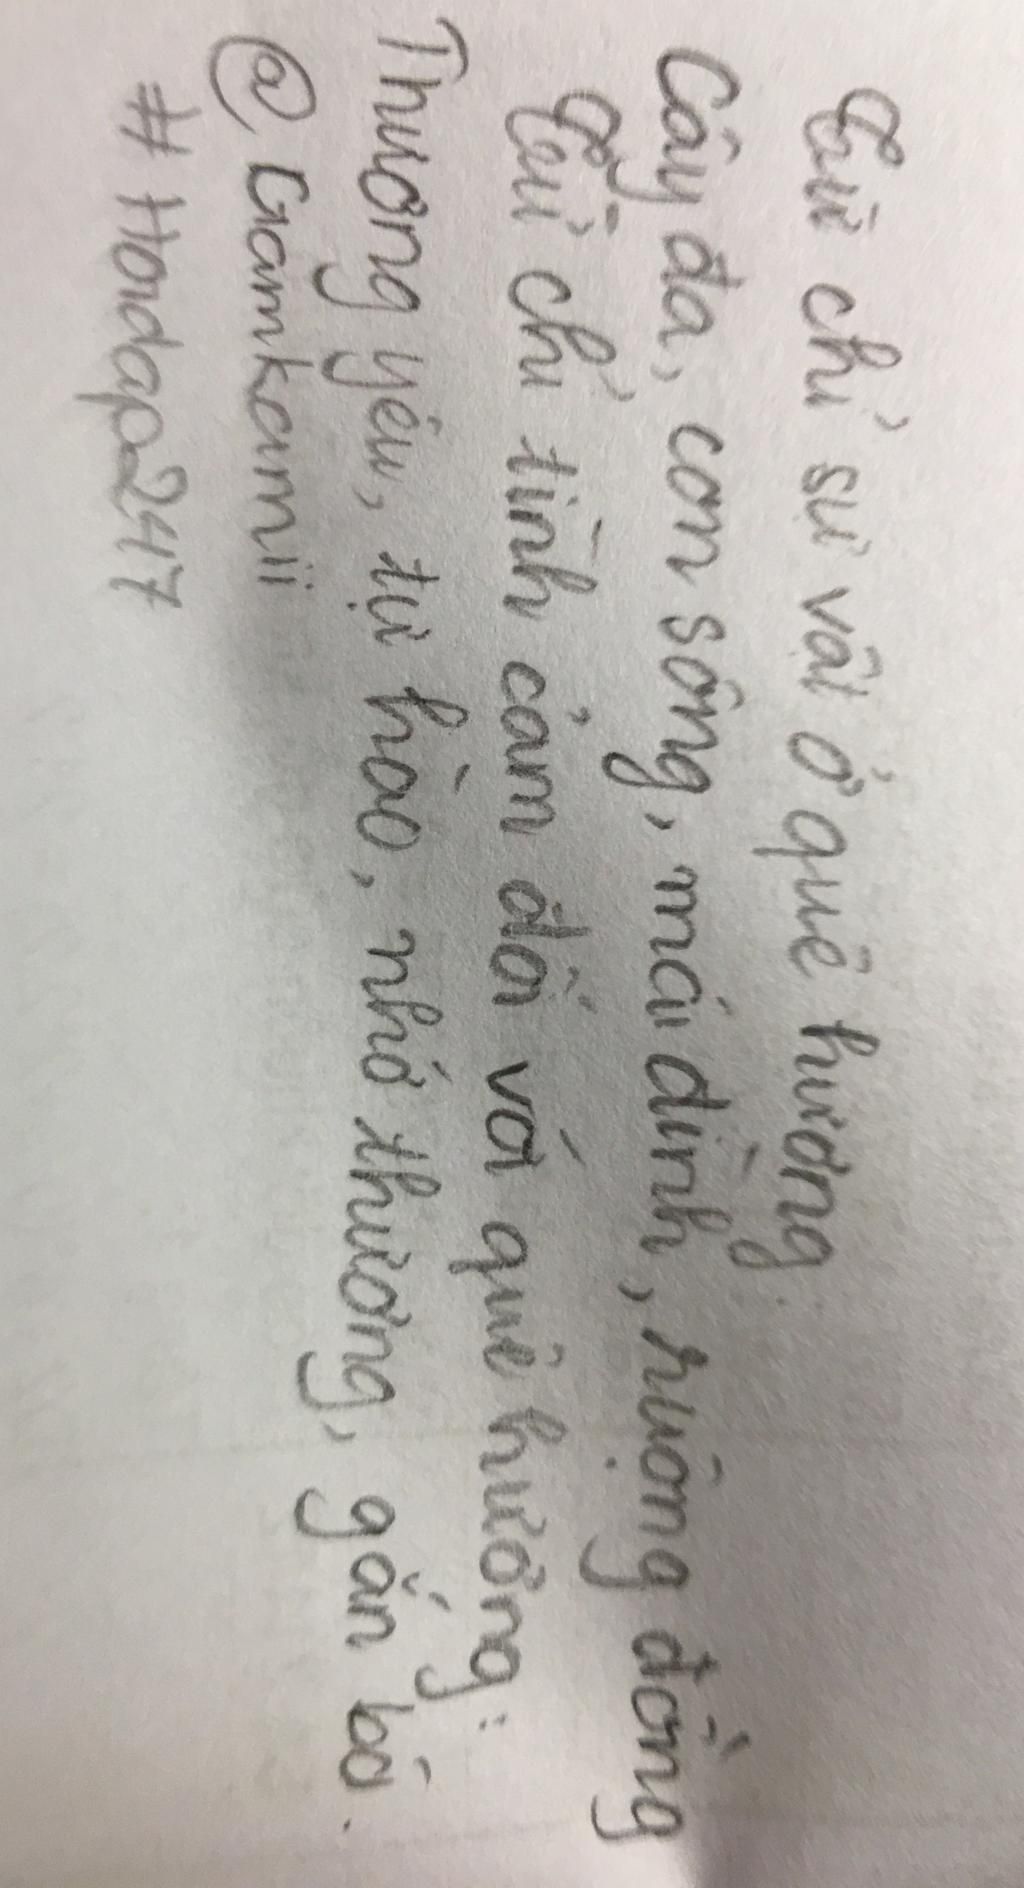 Từ chỉ sự vật ở quê hương.
Cây đa, con sông, mái đình, ruộng đồng
Từ chỉ tình cảm đối với quê hương:
Thương yêu, tự hào, nhớ thương, gắn bó.
@Gamkamii
#Hoidap247